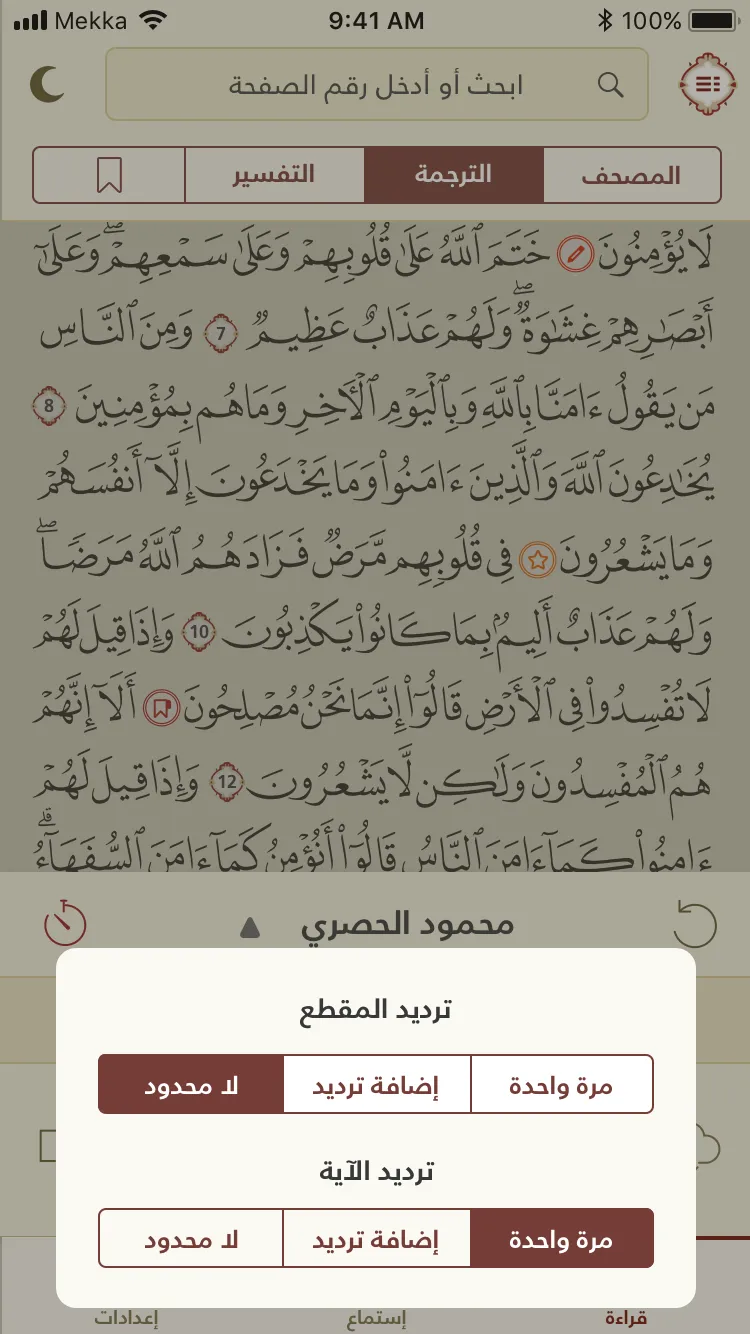 Mekka 9:41 AM 100%
ابحث أو أدخل رقم الصفحة
المصحف الترجمة التفسير
لَا يُؤْمِنُونَ خَتَمَ ٱللَّهُ عَلَىٰ قُلُوبِهِمْ وَعَلَىٰ سَمْعِهِمْ ۖ وَعَلَىٰٓ
أَبْصَٰرِهِمْ غِشَٰوَةٌ ۖ وَلَهُمْ عَذَابٌ عَظِيمٌ 7 وَمِنَ ٱلنَّاسِ
مَن يَقُولُ ءَامَنَّا بِٱللَّهِ وَبِٱلْيَوْمِ ٱلْءَاخِرِ وَمَا هُم بِمُؤْمِنِينَ 8
يُخَٰدِعُونَ ٱللَّهَ وَٱلَّذِينَ ءَامَنُوا۟ وَمَا يَخْدَعُونَ إِلَّآ أَنفُسَهُمْ
وَمَا يَشْعُرُونَ فِى قُلُوبِهِم مَّرَضٌ فَزَادَهُمُ ٱللَّهُ مَرَضًا ۖ
وَلَهُمْ عَذَابٌ أَلِيمٌۢ بِمَا كَانُوا۟ يَكْذِبُونَ 10 وَإِذَا قِيلَ لَهُمْ
لَا تُفْسِدُوا۟ فِى ٱلْأَرْضِ قَالُوٓا۟ إِنَّمَا نَحْنُ مُصْلِحُونَ أَلَآ إِنَّهُمْ
هُمُ ٱلْمُفْسِدُونَ وَلَٰكِن لَّا يَشْعُرُونَ 12 وَإِذَا قِيلَ لَهُمْ
ءَامِنُوا۟ كَمَآ ءَامَنَ ٱلنَّاسُ قَالُوٓا۟ أَنُؤْمِنُ كَمَآ ءَامَنَ ٱلسُّفَهَآءُ ۗ
محمود الحصري
ترديد المقطع
مرة واحدة إضافة ترديد لا محدود
ترديد الآية
مرة واحدة إضافة ترديد لا محدود
قراءة إستماع إعدادات